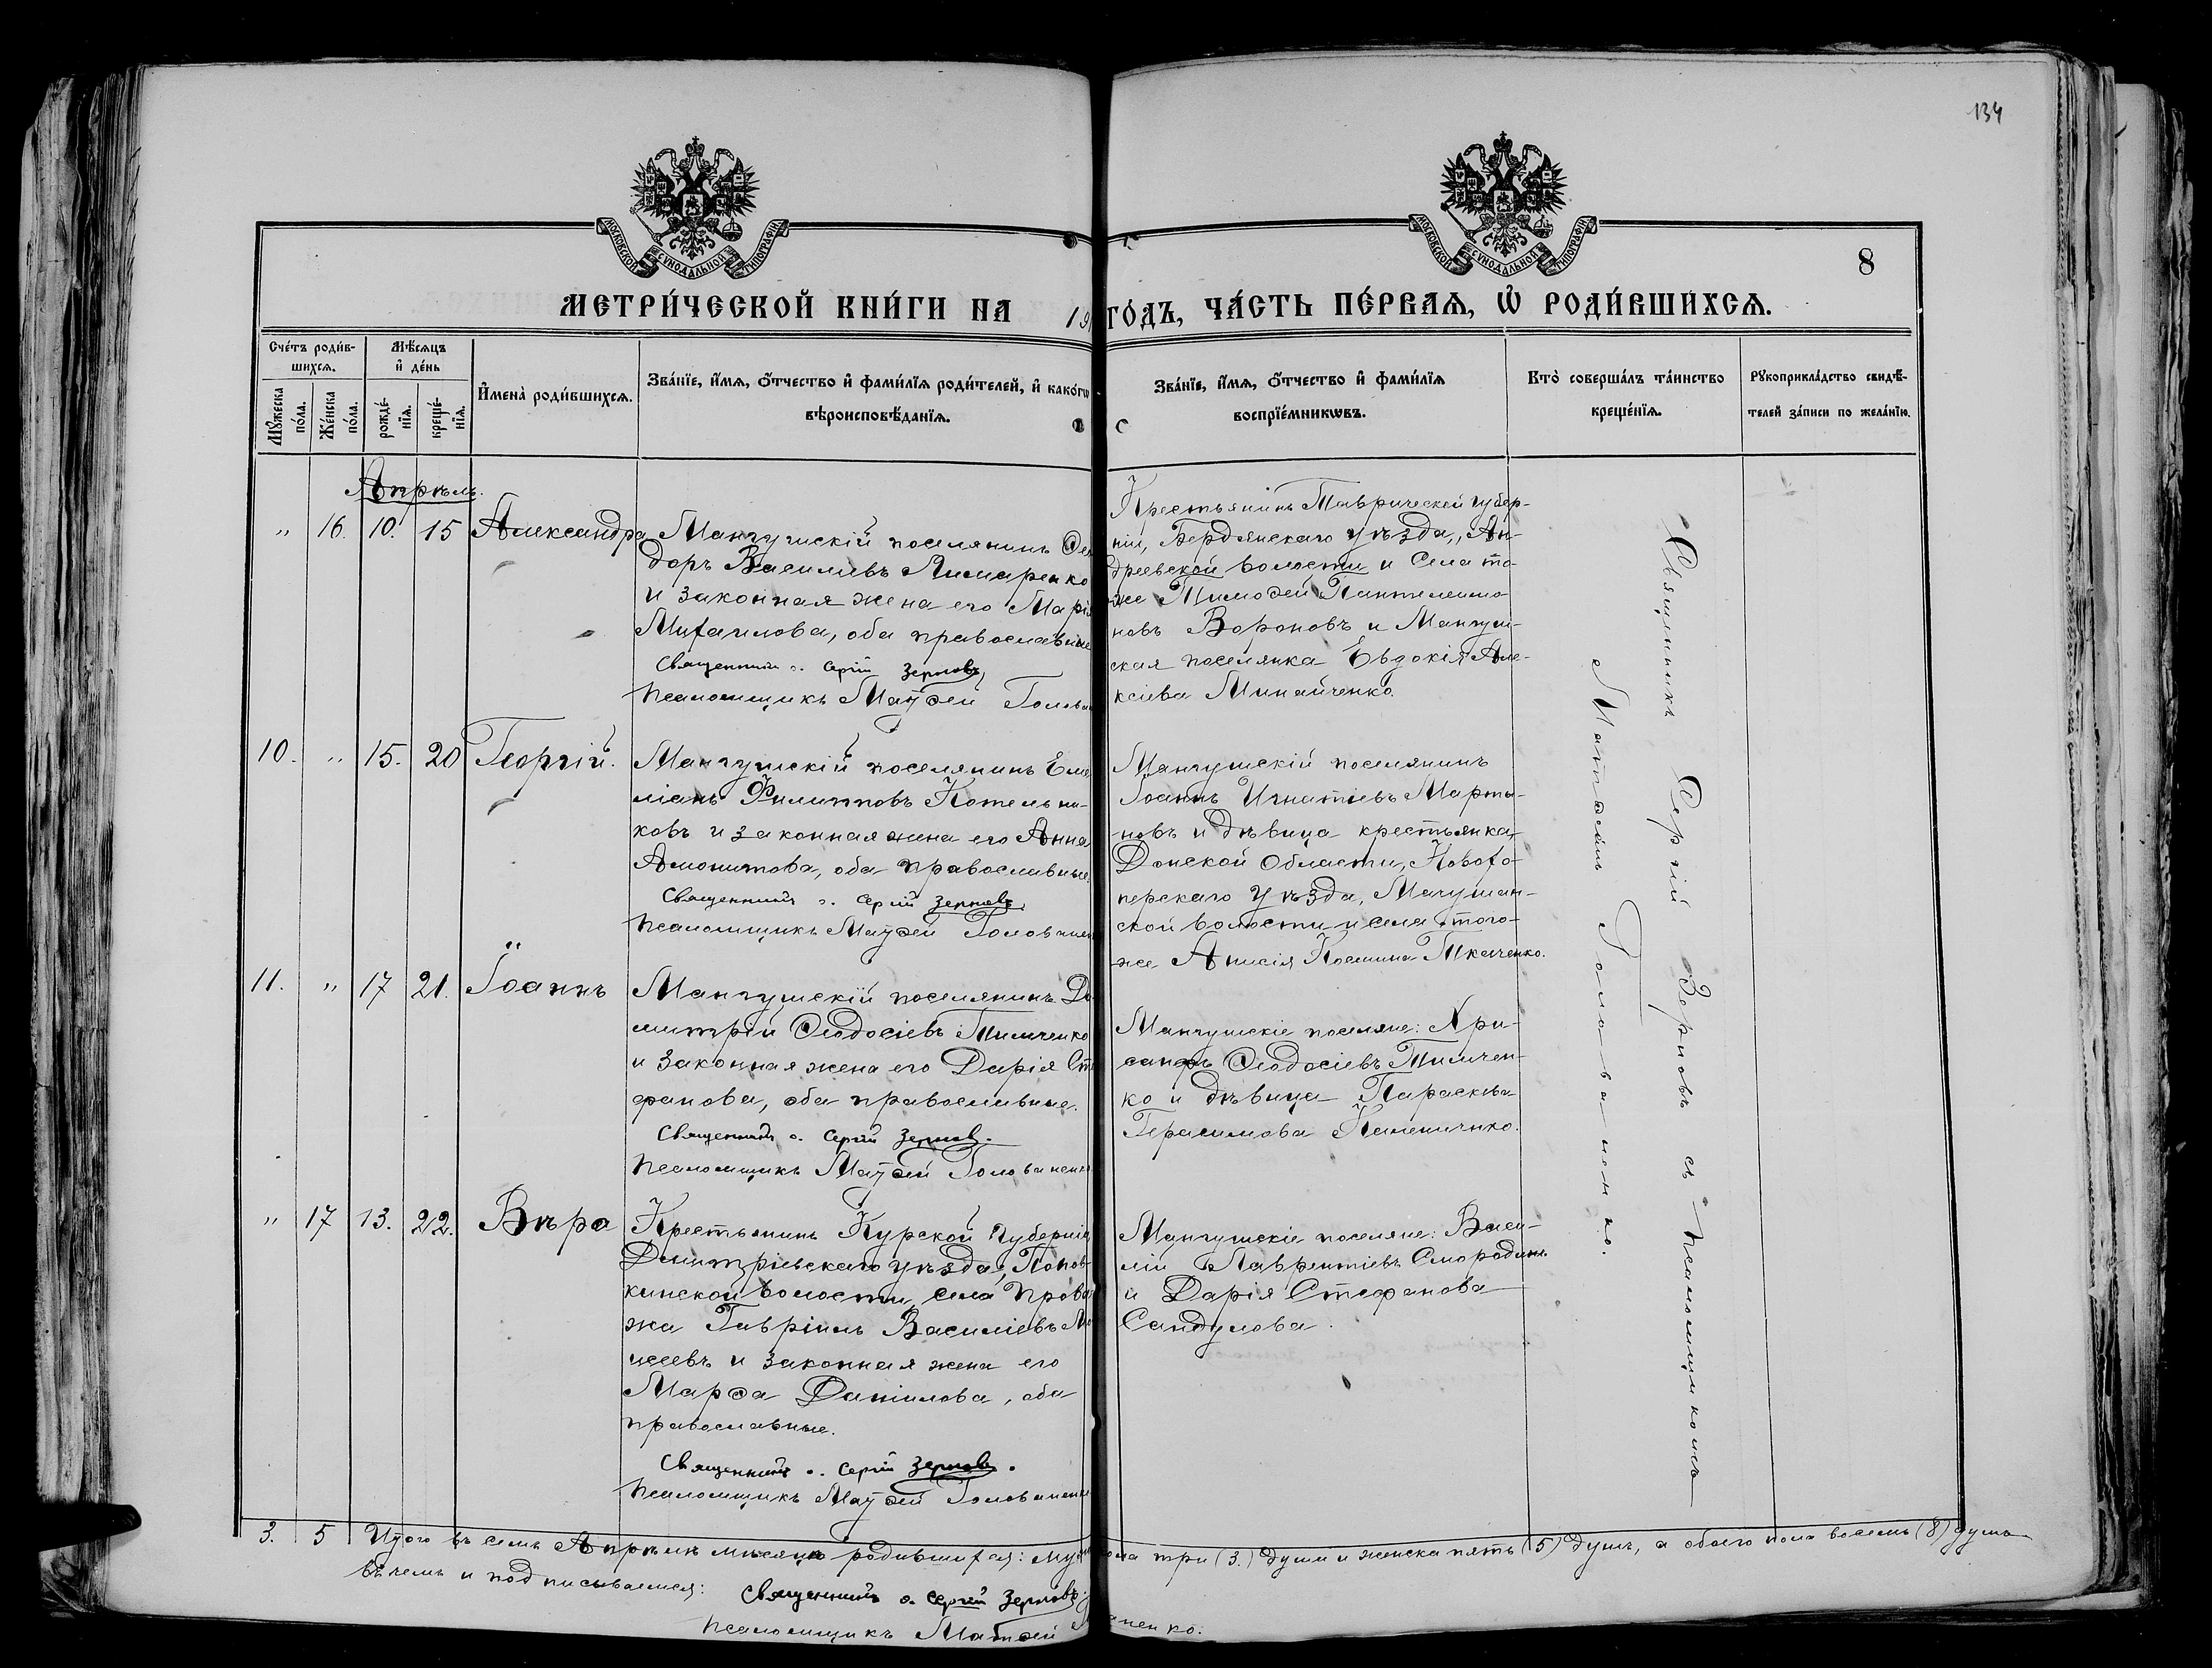 134
МОСКОВСКОЙ СѴНОДАЛЬНОЙ ТИПОГРАФІИ
МОСКОВСКОЙ СѴНОДАЛЬНОЙ ТИПОГРАФІИ
8
МЕТРИ́ЧЕСКОЙ КНИ́ГИ НА 19
ГО́ДЪ, ЧА́СТЬ ПЕ́РВАѦ, Ѡ҆ РОДИ́ВШИХСѦ.
Сче́тъ роди́в-
шихсѧ.
Мѣ́сѧцъ
и҆ де́нь
Мꙋ́жеска по́ла.
Же́нска по́ла.
рожде́-нїѧ.
креще́-нїѧ.
И҆мена̀ роди́вшихсѧ.
Зва́нїе, и҆́мѧ, ѻ҆́тчество и҆ фами́лїѧ роди́телей, и҆ како́гѡ
вѣроисповѣ́данїѧ.
Зва́нїе, и҆́мѧ, ѻ҆́тчество и҆ фами́лїѧ
воспрїе́мникѡвъ.
Кто̀ соверша́лъ та́инство
креще́нїѧ.
Рꙋкоприкла́дство свидѣ́-
телей за́писи по жела́нїю.
Апрѣль.
„ 16. 10. 15 Александра
Мангушскій поселянинъ Ѳео
доръ Васильевъ Лимаренко
и законная жена его Марія
Михаилова, оба православные
Священникъ о. Сергій Зерновъ,
Псаломщикъ Матѳей Голован
Крестьянинъ Таврической губер-
ніи, Бердянскаго уѣзда, Ан-
дреевской волости и села то-
же Тимоѳей Пантелеимо-
новъ Вороновъ и Мангуш-
ская поселянка Евдокія Але-
ксіева Минайченко.
10. „ 15. 20 Георгій.
Мангушскій поселянинъ Еми
ліанъ Филипповъ Котельни-
ковъ и законная жена его Анна
оба православные.
Священникъ о. Сергій Зерновъ,
Псаломщикъ Матѳей Голованен
Мангушскій поселянинъ
Іоаннъ Игнатіевъ Марты-
новъ и дѣвица крестьянка,
Донской Области, Новохо-
перскаго уѣзда, Мачушан-
ской волости и села того-
же Анисія Космина Ткаченко.
11. „ 17 21. Іоаннъ
Мангушскій поселянинъ Ди
митрій Ѳеодосіевъ Тимченко
и законная жена его Дарія Сте
фанова, оба православные.
Священникъ о. Сергій Зерновъ.
Псаломщикъ Матѳей Голованенко
Мангушскіе поселяне: Хри-
санфъ Ѳеодосіевъ Тимчен-
ко и дѣвица Параскева
Герасимова
„ 17 13. 22. Вѣра
Крестьянинъ Курской губерніи
Дмитріевскаго уѣзда, Попов-
кинской волости, села Прова
жа Гавріилъ Василіевъ Мо
исеевъ и законная жена его
Марѳа Даніилова, оба
православные.
Священникъ о. Сергій Зерновъ.
Псаломщикъ Матѳей Голованенко
Мангушскіе поселяне: Васи-
лій Лаврентіевъ Смородинъ
и Дарія Стефанова
Сандулова.
Священникъ Сергій Зерновъ съ псаломщикомъ
Матѳеемъ Голованенко.
3. 5 Итого въ семъ Апрѣлѣ мѣсяцѣ родившихся: муж
ола три (3.) души и женска пять (5) душъ, а обоего пола восемь (8) душъ
въ чемъ и подписываемся: Священникъ о. Сергій Зерновъ;
Псаломщикъ Матѳей Г
аненко.